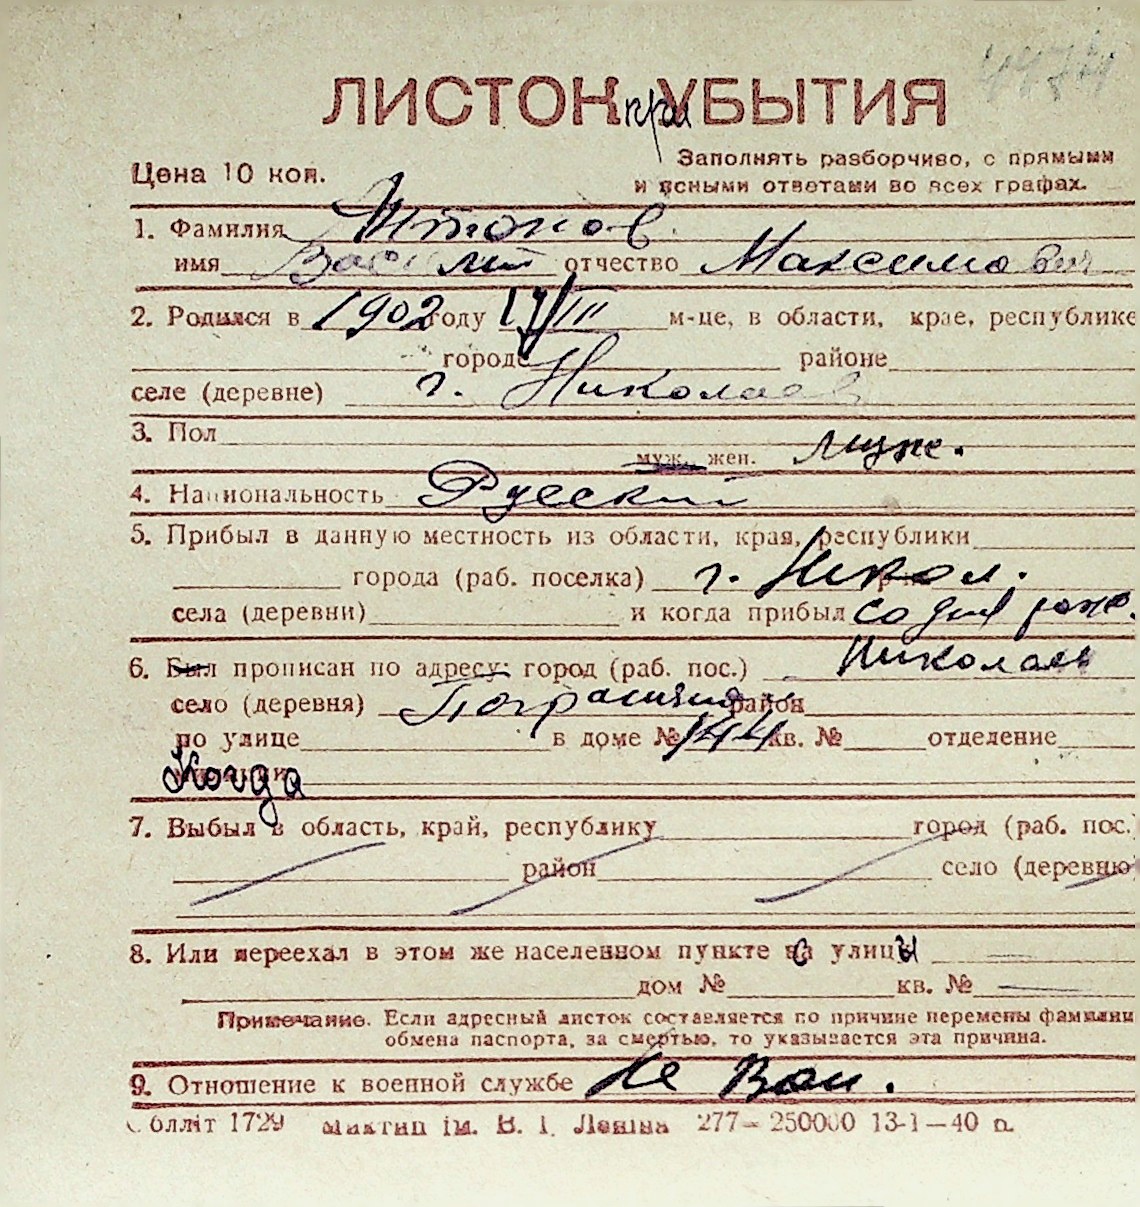 4474
ЛИСТОК при УБЫТИЯ
Цена 10 коп.
Заполнять разборчиво, с прямыми
и ясными ответами во всех графах.
1. Фамилия
имя Василий отчество Максимович
2. Родился в 1902 году 17/III м-це, в области, крае, республике
городе районе
селе (деревне) г. Николаев
3. Пол
муж., жен. муж.
4. Национальность Русский
5. Прибыл в данную местность из области, края, республики
города (раб. поселка) г. Никол.
села (деревни) и когда прибыл со дня рожд.
6. Был прописан по адресу: город (раб. пос.) Николаев
село (деревня) Пограничная район
по улице в доме № 144 кв. № отделение
Когда
7. Выбыл в область, край, республику город (раб. пос.)
район село (деревню)
8. Или переехал в этом же населенном пункте с улицы
дом № кв. №
Примечание. Если адресный листок составляется по причине перемены фамилии
обмена паспорта, за смертью, то указывается эта причина.
9. Отношение к военной службе Не Вои.
облліт 1729 ім. В. І. Леніна 277 – 250000 13-1–40 р.